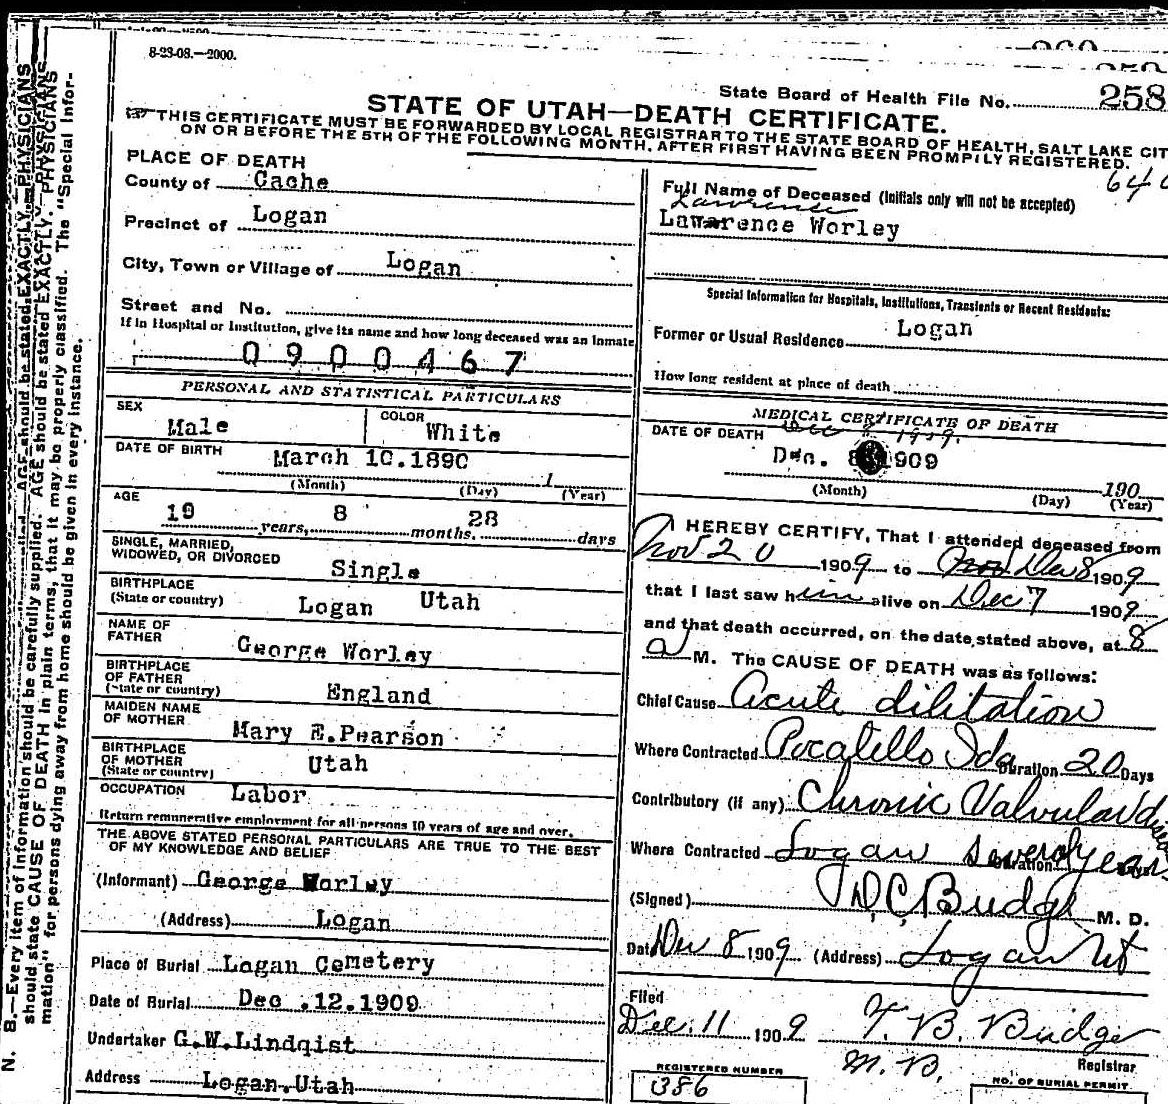 8-23-08.—2000.
State Board of Health File No. 258
STATE OF UTAH—DEATH CERTIFICATE.
THIS CERTIFICATE MUST BE FORWARDED BY LOCAL REGISTRAR TO THE STATE BOARD OF HEALTH, SALT LAKE CIT
ON OR BEFORE THE 5TH OF THE FOLLOWING MONTH, AFTER FIRST HAVING BEEN PROMPTLY REGISTERED.
PLACE OF DEATH
County of Cache
Precinct of Logan
City, Town or Village of Logan
Street and No.
If in Hospital or Institution, give its name and how long deceased was an inmate
0900467
PERSONAL AND STATISTICAL PARTICULARS
SEX Male COLOR White
DATE OF BIRTH March 10.1890
(Month) (Day) 1 (Year)
AGE 19 years, 8 months. 28 days
SINGLE, MARRIED,
WIDOWED, OR DIVORCED Single
BIRTHPLACE
(State or country) Logan Utah
NAME OF
FATHER George Worley
BIRTHPLACE
OF FATHER
(State or country) England
MAIDEN NAME
OF MOTHER Mary E.Pearson
BIRTHPLACE
OF MOTHER
(State or country) Utah
OCCUPATION Labor
Return remunerative employment for all persons 10 years of age and over.
THE ABOVE STATED PERSONAL PARTICULARS ARE TRUE TO THE BEST
OF MY KNOWLEDGE AND BELIEF
(Informant) George Worley
(Address) Logan
Place of Burial Logan Cemetery
Date of Burial Dec .12.1909
Undertaker G.W.Lindqist
Address Logan.Utah
Full Name of Deceased (Initials only will not be accepted)
Lawrence
Lawarence Worley
Special Information for Hospitals, Institutions, Transients or Recent Residents:
Former or Usual Residence Logan
How long resident at place of death
MEDICAL CERTIFICATE OF DEATH
DATE OF DEATH Dec 8 1909.
Dec. 8 1909
(Month) (Day) 190 (Year)
I HEREBY CERTIFY, That I attended deceased from
Nov 20 1909 to Nov Dec 8 1909
that I last saw him alive on Dec 7 1909
and that death occurred, on the date stated above, at 8
a M. The CAUSE OF DEATH was as follows:
Chief Cause Acute dilitation
Where Contracted Pocatello Ida Duration 20 Days
Contributory (if any) Chronic Valvular
Where Contracted Logan Duration several years
(Signed) D.C. Budge M. D.
Date Dec 8 1909 (Address) Logan Ut
Filed
Dec. 11 1909 T. B. Budge
M. D. Registrar
REGISTERED NUMBER
386
NO. OF BURIAL PERMIT
N. B.—Every item of information should be carefully supplied. AGE should be stated EXACTLY. PHYSICIANS
should state CAUSE OF DEATH in plain terms, that it may be properly classified. The "Special Infor-
mation" for persons dying away from home should be given in every instance.